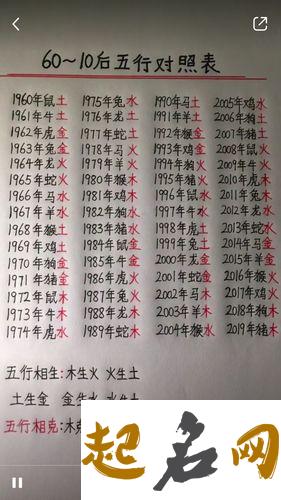 60~10后五行对照表
1960年鼠土 1975年兔水 1990年马土 2005年鸡水
1961年牛土 1976年龙土 1991年羊土 2006年狗土
1962年虎金 1977年蛇土 1992年猴金 2007年猪土
1963年兔金 1978年马火 1993年鸡金 2008年鼠火
1964年龙火 1979年羊火 1994年狗火 2009年牛火
1965年蛇火 1980年猴木 1995年猪火 2010年虎木
1966年马水 1981年鸡木 1996年鼠水 2011年兔木
1967年羊水 1982年狗水 1997年牛水 2012年龙水
1968年猴土 1983年猪水 1998年虎土 2013年蛇水
1969年鸡土 1984年鼠金 1999年兔土 2014年马金
1970年狗金 1985年牛金 2000年龙金 2015年羊金
1971年猪金 1986年虎火 2001年蛇金 2016年猴火
1972年鼠木 1987年兔火 2002年马木 2017年鸡火
1973年牛木 1988年龙木 2003年羊木 2018年狗木
1974年虎水 1989年蛇木 2004年猴水 2019年猪木
五行相生:木生火 火生土
土生金 金生水
五行相克:木
起名网